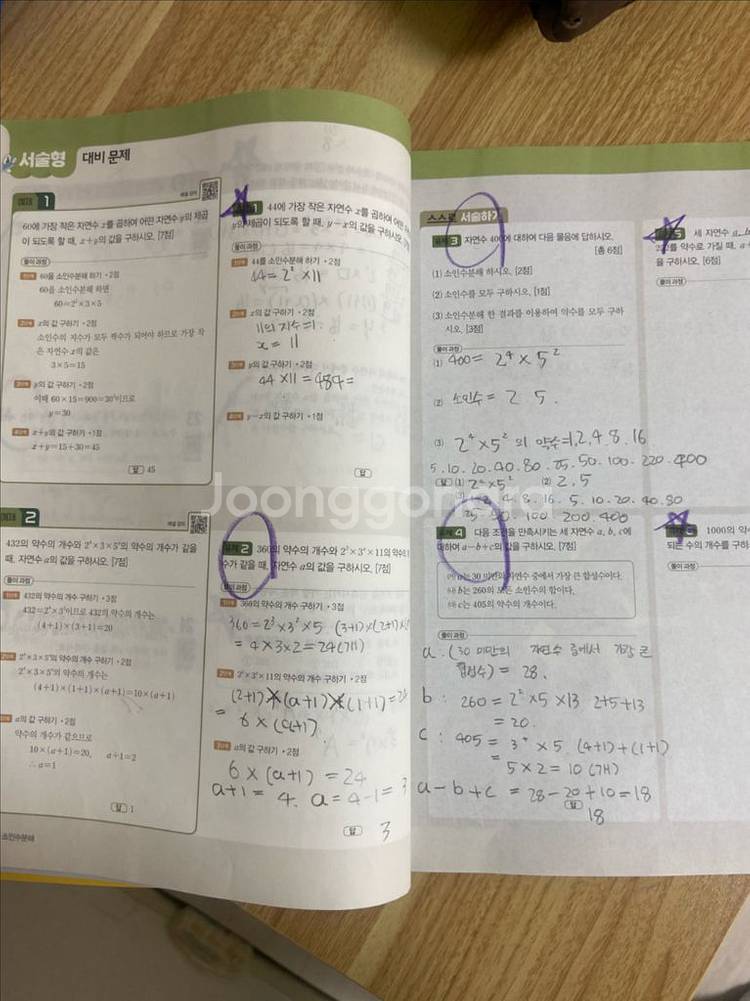 서술형 대비 문제
예제 1
60에 가장 작은 자연수 x를 곱하여 어떤 자연수 y의 제곱
이 되도록 할 때, x+y의 값을 구하시오. [7점]
풀이 과정
1단계 60을 소인수분해 하기 • 2점
60을 소인수분해 하면
60=2²×3×5
2단계 x의 값 구하기 • 2점
소인수의 지수가 모두 짝수가 되어야 하므로 가장 작
은 자연수 x의 값은
3×5=15
3단계 y의 값 구하기 • 2점
이때 60×15=900=30²이므로
y=30
4단계 x+y의 값 구하기 • 1점
x+y=15+30=45
답 45
1 44에 가장 작은 자연수 x를 곱하여 어떤
y의 제곱이 되도록 할 때, y-x의 값을 구하시오.
풀이 과정
1단계 44를 소인수분해 하기 • 2점
44=2²×11
2단계 x의 값 구하기 • 2점
11의 지수=1.
x = 11
3단계 y의 값 구하기 • 2점
44×11=484=
4단계 y-x의 값 구하기 • 1점
답
예제 2
432의 약수의 개수와 2⁴×3×5ᵃ의 약수의 개수가 같을
때, 자연수 a의 값을 구하시오. [7점]
풀이 과정
1단계 432의 약수의 개수 구하기 • 3점
432=2⁴×3³이므로 432의 약수의 개수는
(4+1)×(3+1)=20
2단계 2⁴×3×5ᵃ의 약수의 개수 구하기 • 2점
2⁴×3×5ᵃ의 약수의 개수는
(4+1)×(1+1)×(a+1)=10×(a+1)
3단계 a의 값 구하기 • 2점
약수의 개수가 같으므로
10×(a+1)=20, a+1=2
∴ a=1
답 1
소인수분해
유제 2 360의 약수의 개수와 2²×3ᵃ×11의 약수의
수가 같을 때, 자연수 a의 값을 구하시오. [7점]
풀이 과정
1단계 360의 약수의 개수 구하기 • 3점
360=2³×3²×5 (3+1)×(2+1)×
= 4×3×2=24(개)
2단계 2²×3ᵃ×11의 약수의 개수 구하기 • 2점
(2+1)×(a+1)×(1+1)=2
= 6×(a+1)
3단계 a의 값 구하기 • 2점
6×(a+1) = 24
a+1= 4. a=4-1= 3
답 3
스스로 서술하기
유제 3 자연수 400에 대하여 다음 물음에 답하시오.
[총 6점]
(1) 소인수분해 하시오. [2점]
(2) 소인수를 모두 구하시오. [1점]
(3) 소인수분해 한 결과를 이용하여 약수를 모두 구하
시오. [3점]
풀이 과정
(1) 400= 2⁴×5²
(2) 소인수= 2 5.
(3) 2⁴×5²의 약수=1,2,4,8.16
5.10.20.40.80.25.50.100.220.400
답 (1) 2⁴×5² (2) 2,5
4. 8. 16. 5. 10. 20. 40. 80
100. 200. 400
유제 4 다음 조건을 만족시키는 세 자연수 a, b, c에
대하여 a-b+c의 값을 구하시오. [7점]
㈎ a는 30 미만의 자연수 중에서 가장 큰 합성수이다.
㈏ b는 260의 모든 소인수의 합이다.
㈐ c는 405의 약수의 개수이다.
풀이 과정
a : (30 미만의 자연수 중에서 가장 큰
합성수) = 28.
b : 260 = 2²×5×13 2+5+13
= 20.
c : 405 = 3⁴×5. (4+1)+(1+1)
= 5×2=10(개)
a-b+c = 28-20+10=18
답 18
5 세 자연수 a, b
를 약수로 가질 때, a
을 구하시오. [6점]
풀이 과정
1000의 약
되는 수의 개수를 구하
Joonggonara